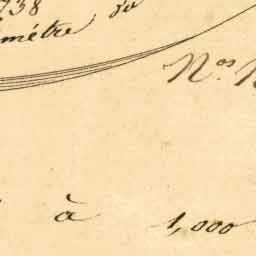 738
mètre du
Nos
à 1,000